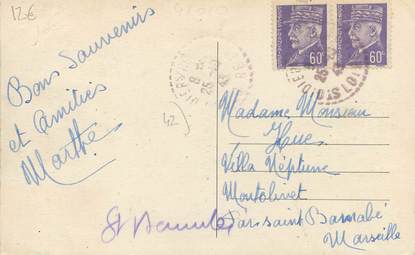 12€
Bons Souvenirs
et Amitiés
Marthe
42
60ᶜ
60ᶜ
Madame Monsieur
Hue
Villa Neptune
Montolivet
Par saint Barnabé
Marseille